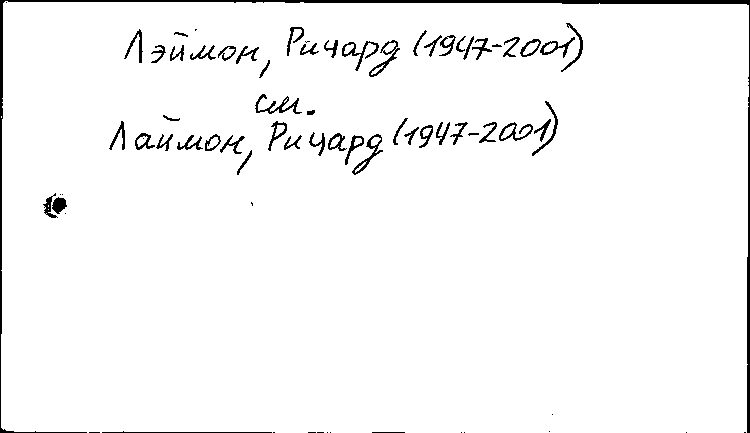 Лэймон, Ричард (1947-2001)
см.
Лаймон, Ричард (1947-2001)